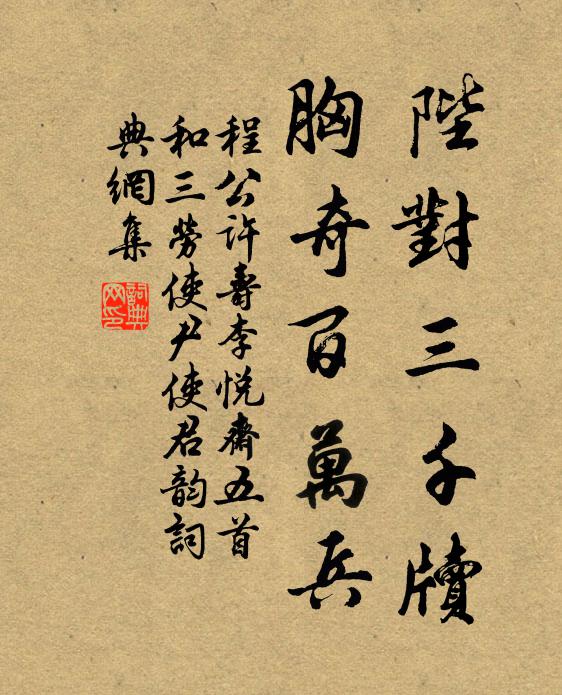 陛對三千牘
胸奇百萬兵
程公許壽李悅齋五首
和三勞使尹使君韵詞
典網集
詞典網印